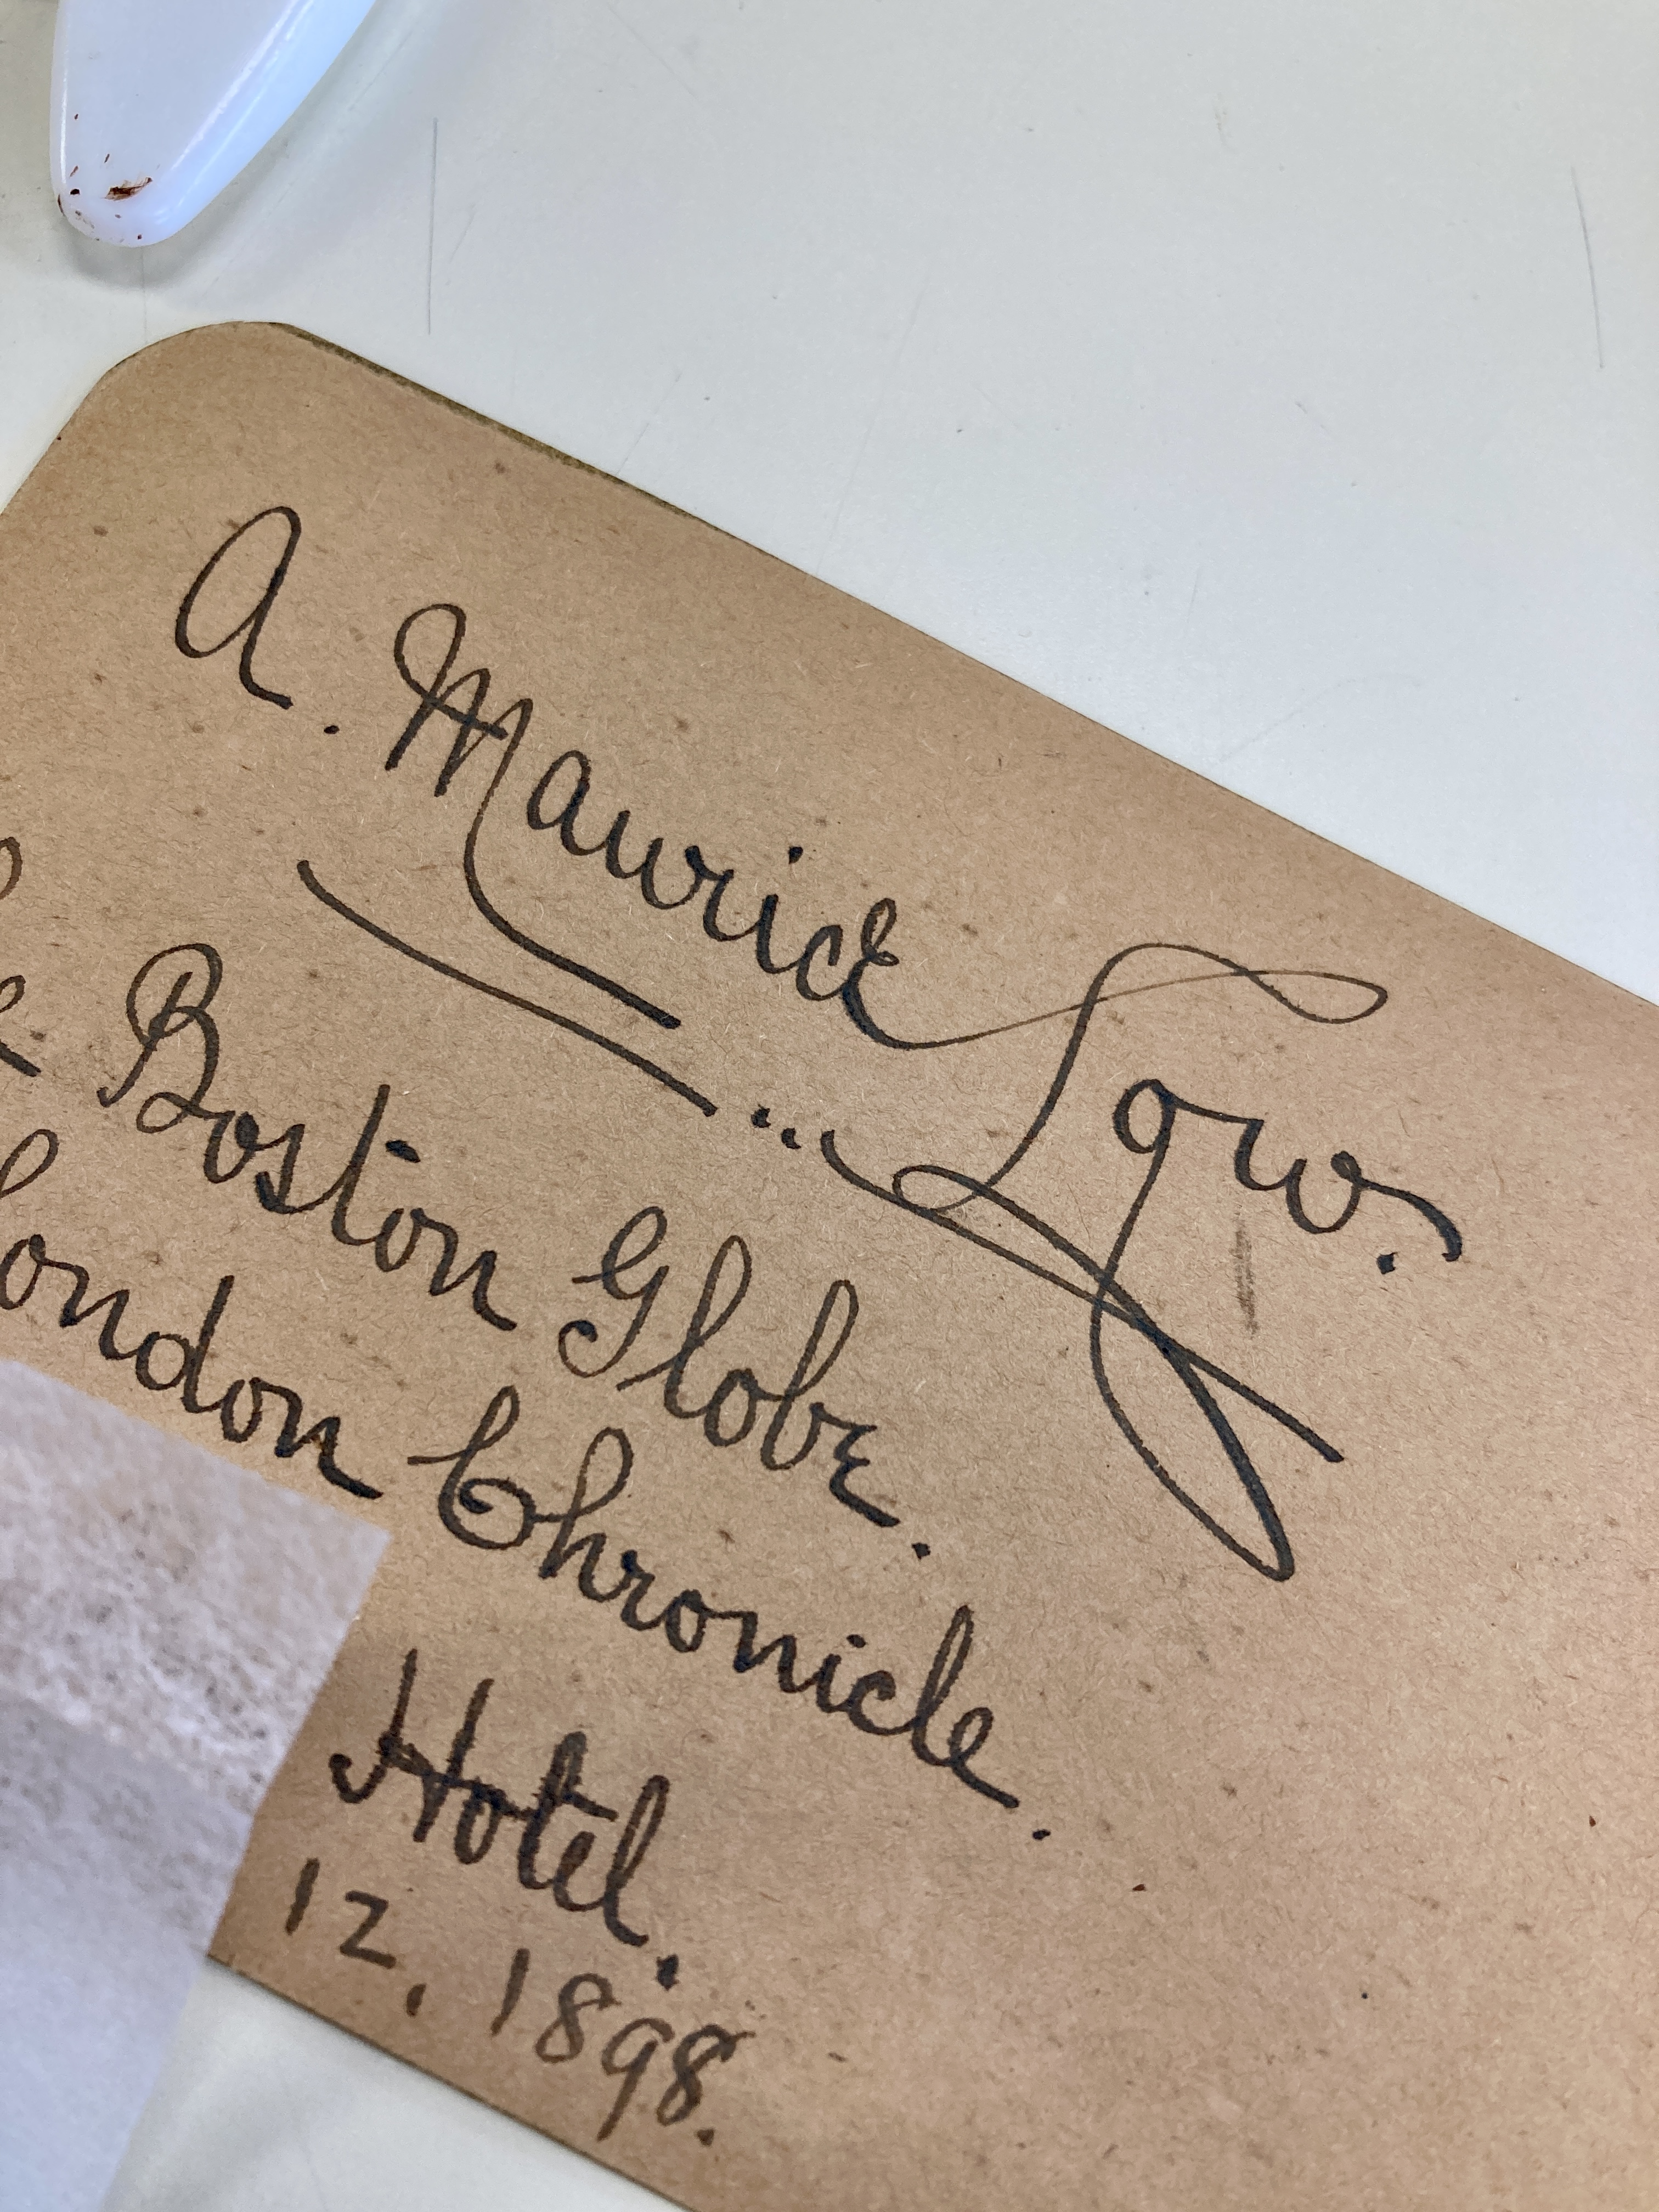 A. Maurice Low.
Boston Globe.
London Chronicle.
Hotel.
12, 1898.